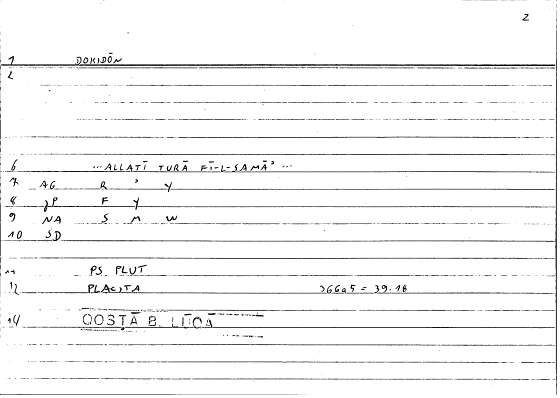 2
1 DOKIDŌN
2
6 ...ALLATĪ TURĀ FĪ-L-SAMĀʾ...
7 AG R ʾ Y
8 gP F Y
9 NA S M W
10 SD
11 PS. PLUT
12 PLACITA 366a5 = 39.18
14 QOSṬĀ B. LŪQĀ